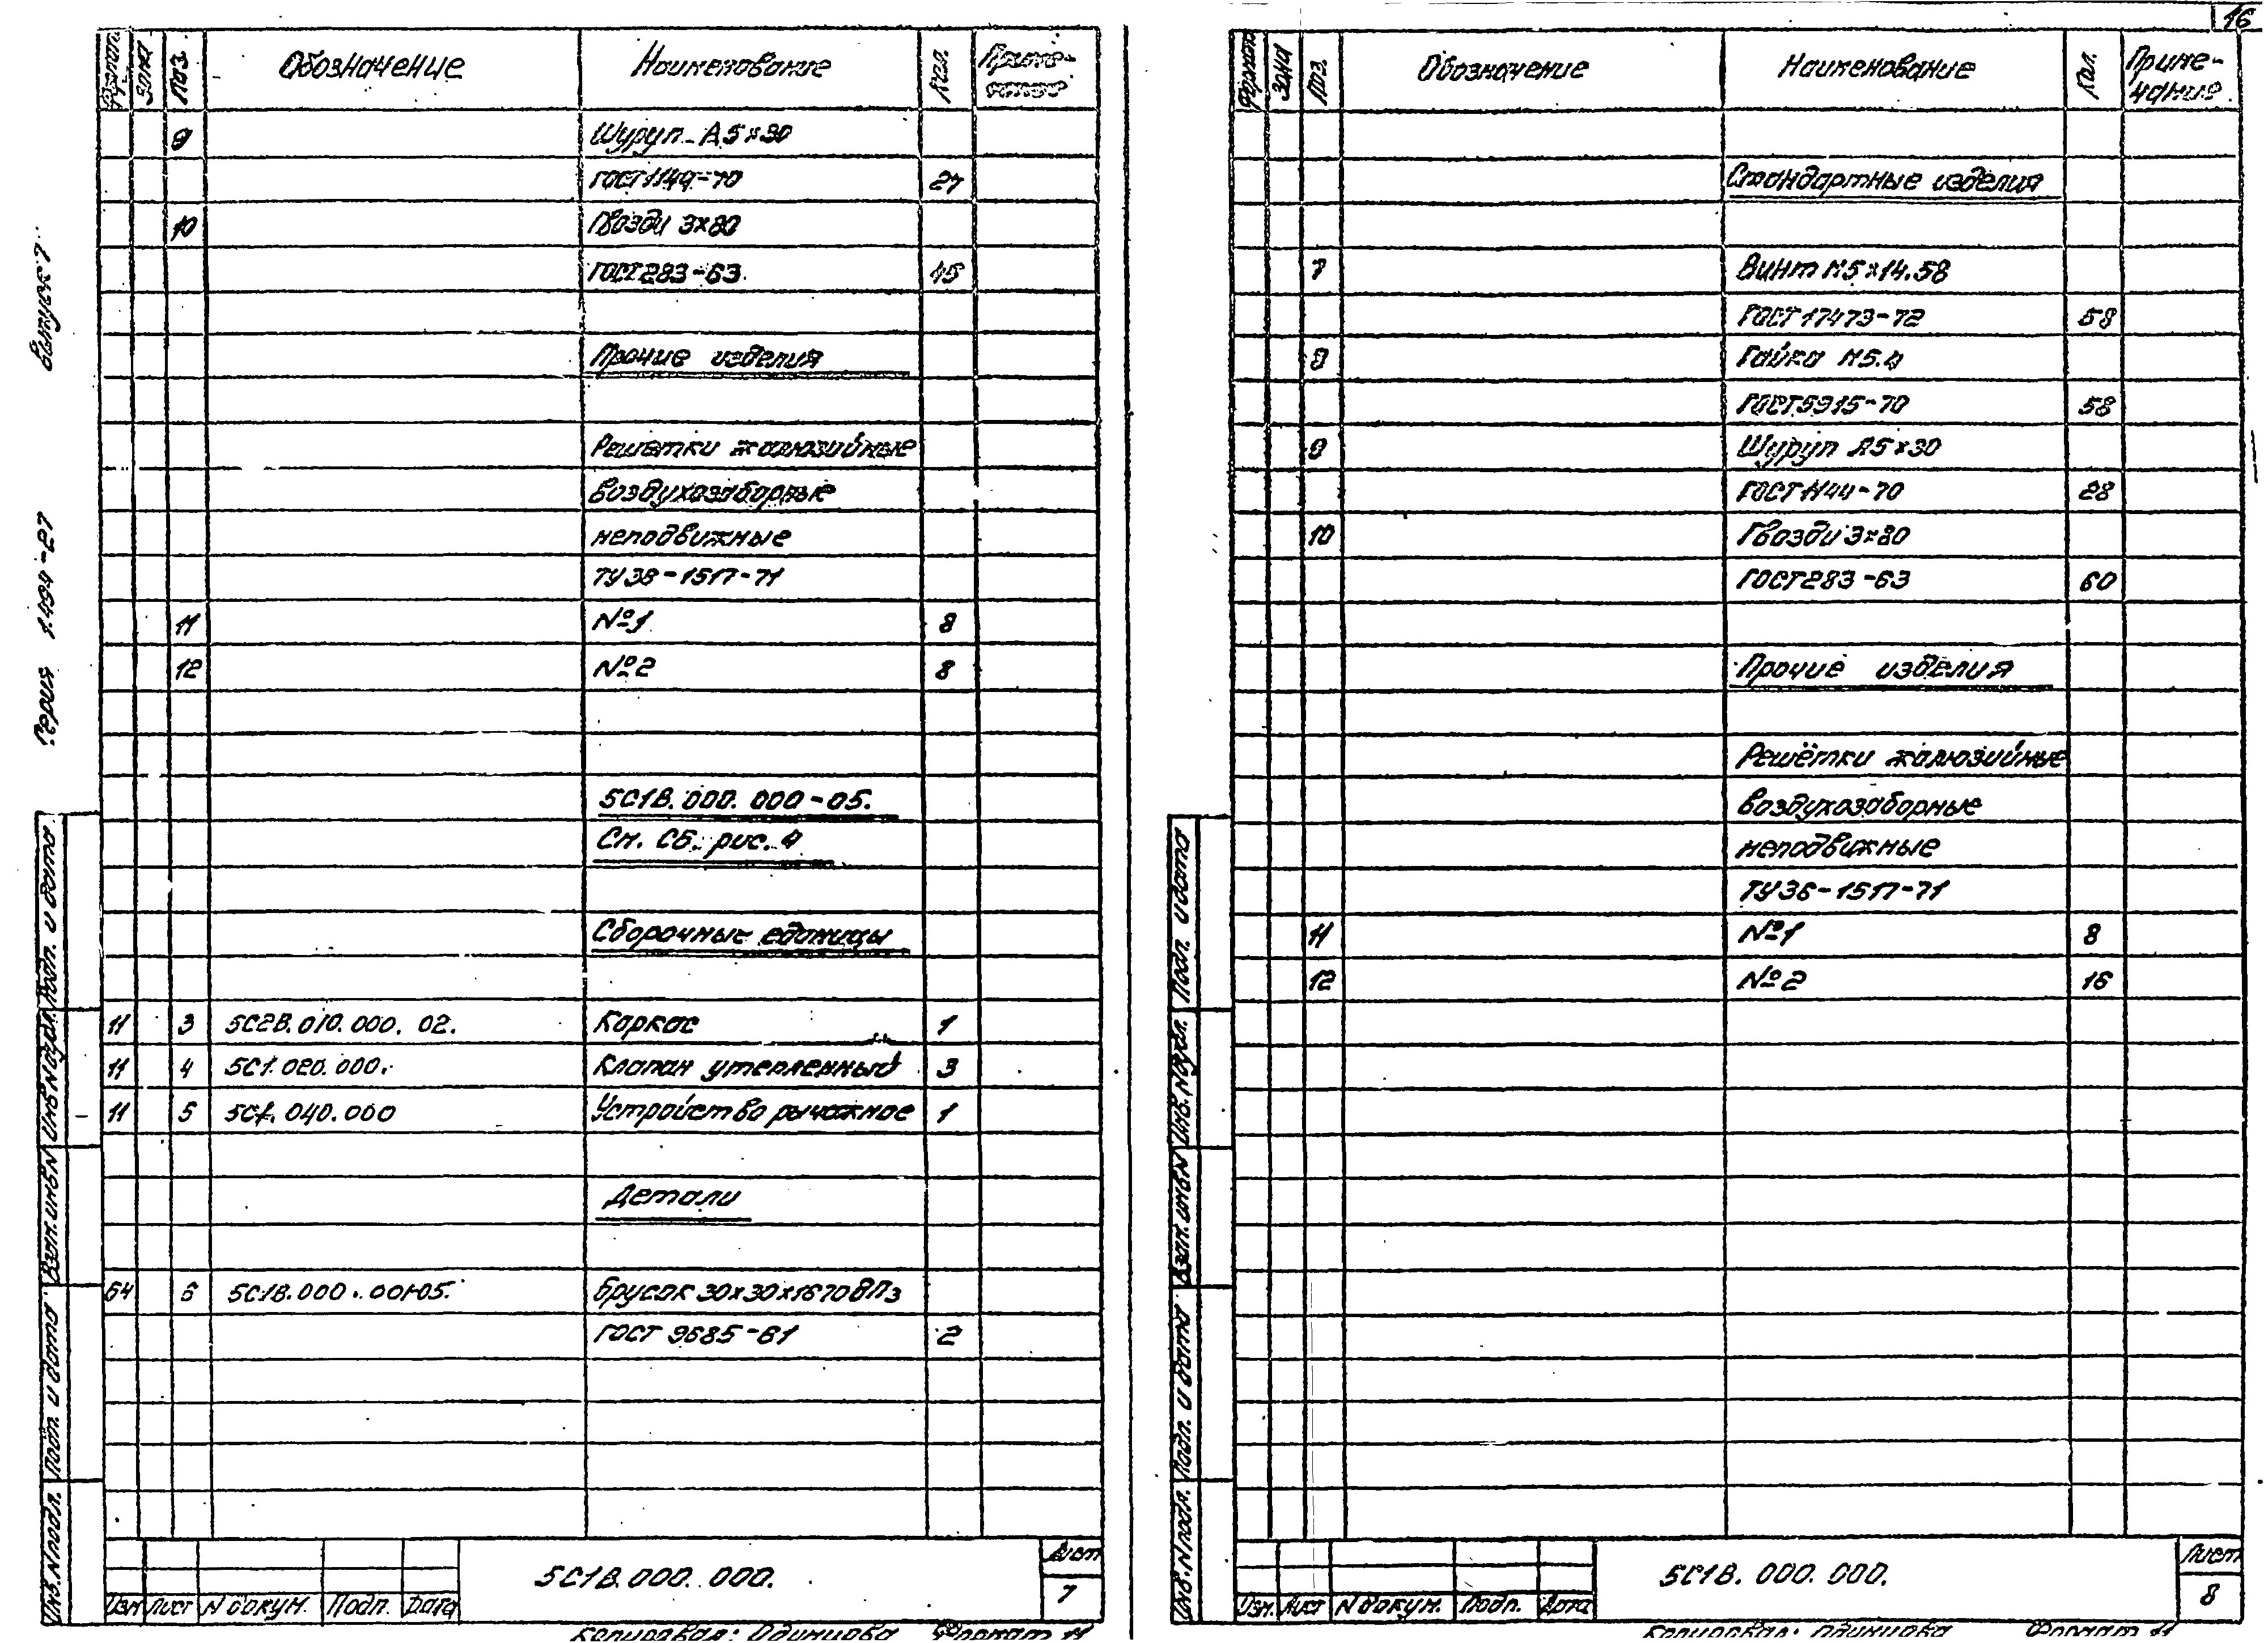 Серия 1.494-27 Выпуск 7
Формат Зона Поз. Обозначение Наименование Кол. Приме-
чание
9 Шуруп А5×30
ГОСТ 1144-70 27
10 Гвозди 3×80
ГОСТ 283-63. 45
Прочие изделия
Решетки жалюзийные
воздухозаборные
неподвижные
ТУ 38-1517-71
11 №1 8
12 №2 8
5С1В.000.000-05.
См. СБ. рис. 4
Сборочные единицы
11 3 5С2В.010.000.02. Каркас 1
11 4 5С1.020.000. Клапан утепленный 3
11 5 5С1.040.000 Устройство рычажное 1
Детали
64 6 5С1В.000.001-05. Брусок 30×30×1670 ВПз
ГОСТ 9685-61 2
Инв.N подл. Подп. и дата Взам.инв.N Инв.N дубл. Подп. и дата
Изм Лист N докум. Подп. Дата
5С1В.000.000.
Лист
7
Копировал: Одинцова Формат 11
16
Формат Зона Поз. Обозначение Наименование Кол. Приме-
чание
Стандартные изделия
7 Винт М5×14.58
ГОСТ 17473-72 58
8 Гайка М5.4
ГОСТ 5915-70 58
9 Шуруп А5×30
ГОСТ 1144-70 28
10 Гвозди 3×80
ГОСТ 283-63 60
Прочие изделия
Решётки жалюзийные
воздухозаборные
неподвижные
ТУ 36-1517-71
11 №1 8
12 №2 16
Инв.N подл. Подп. и дата Взам.инв.N Инв.N дубл. Подп. и дата
Изм. Лист N докум. Подп. Дата
5С1В.000.000.
Лист
8
Копировал: Одинцова Формат 11